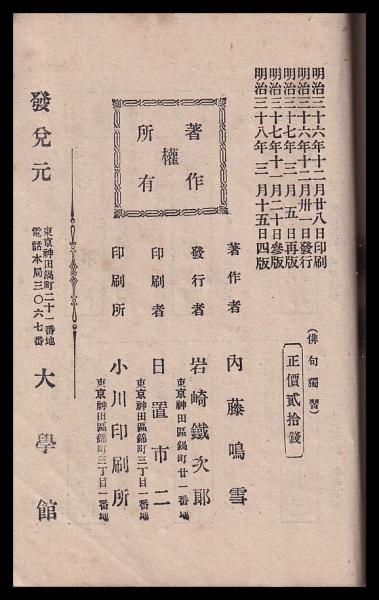 明治三十六年十二月廿八日印刷
明治三十六年十二月卅一日發行
明治三十七年三月五日再版
明治三十七年十一月二十日參版
明治三十八年三月十五日四版
(俳句獨習)
正價貳拾錢
著作權所有
著作者 內藤鳴雪
發行者 岩崎鐵次郞
東京神田區鍋町廿一番地
印刷者 日置市二
東京神田區錦町三丁目一番地
印刷所 小川印刷所
東京神田區錦町三丁目一番地
發兌元 大學館
東京神田鍋町二十一番地
電話本局三〇六七番